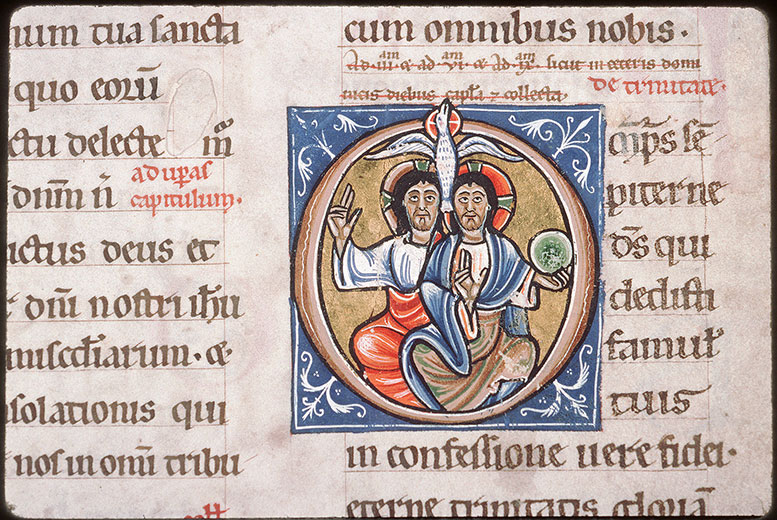 num tua sancta
quo eorū
ctu delecte
dnm n̄
ad uꝑas
capitulum.
ictus deus et
dnī nostri ihu
misc̄diarum. ⁊
solationis qui
nos in omī tribu
cum omnibus nobis.
Ad iii am ⁊ ad vi am ⁊ ad ix am sicut in ceteris domi
nicis diebus capła ⁊ collecta.
de trinitate.
O mps sē
piterne
ds qui
dedisti
famuł
tuis
in confessione uere fidei.
eterne trinitatis gloriā